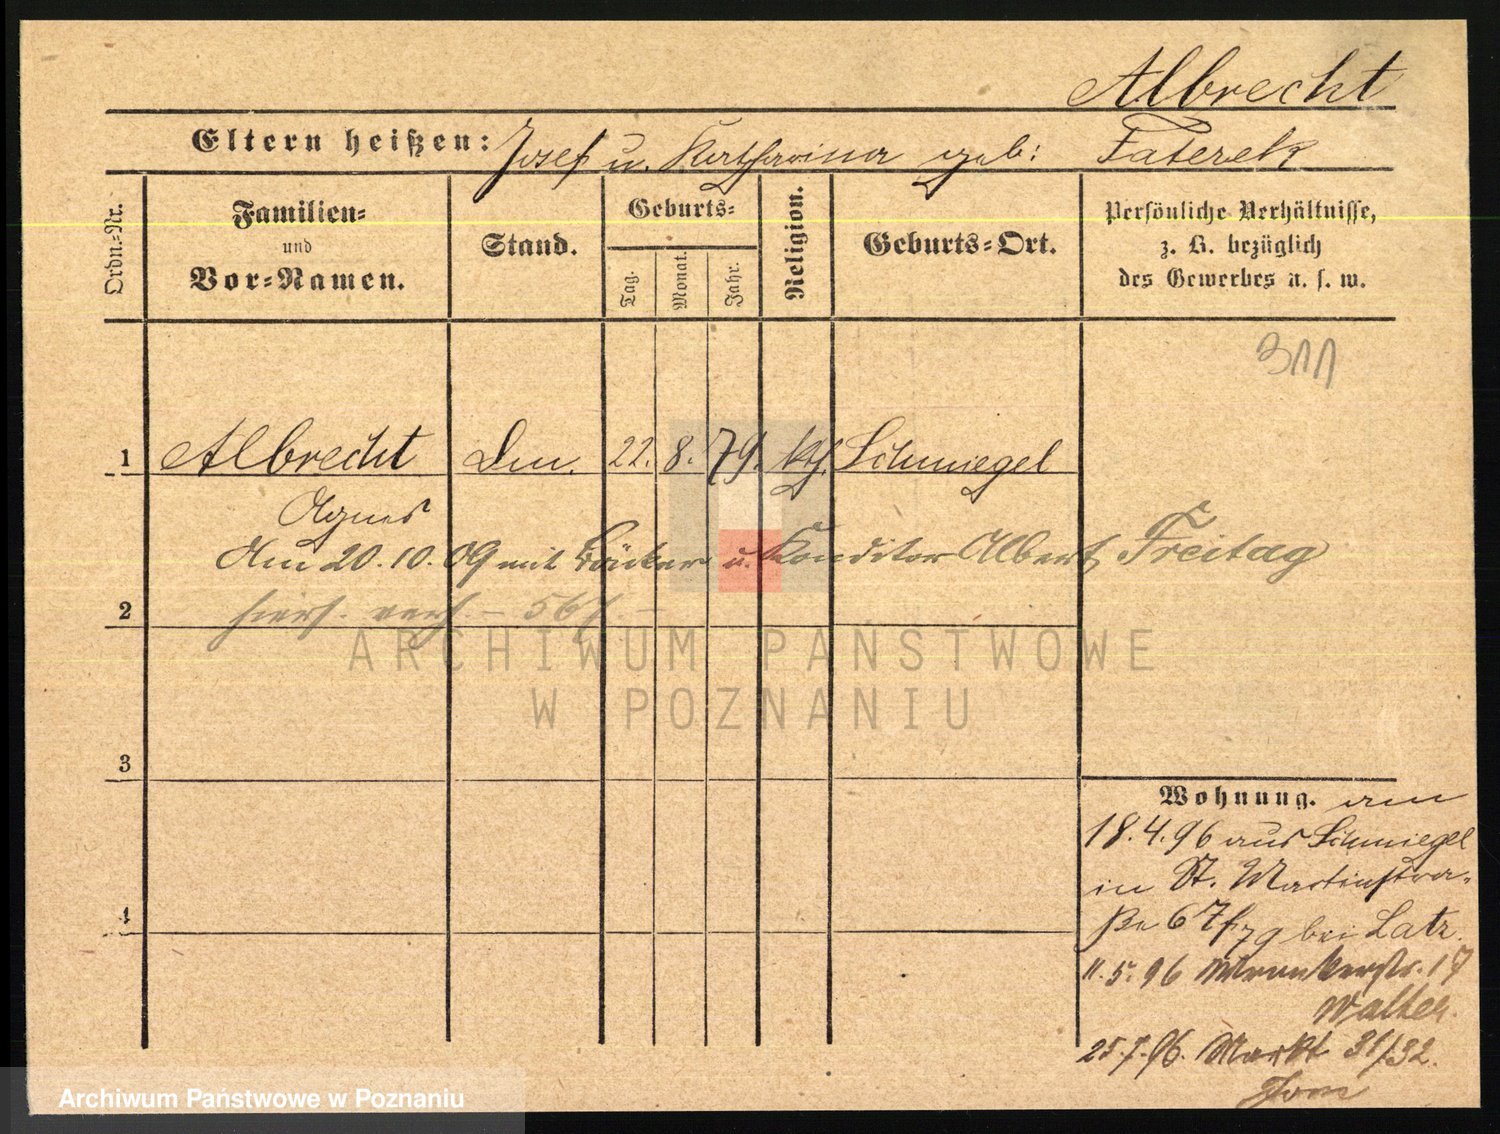 Albrecht
Eltern heißen: Josef u. Katharina geb: Faterek
Ordn.-Nr.
Familien-
und
Vor-Namen.
Stand.
Geburts-
Tag.
Monat.
Jahr.
Religion.
Geburts-Ort.
Persönliche Verhältnisse,
z. B. bezüglich
des Gewerbes u. s. w.
311
1 Albrecht 22. 8. 79. kth. Schmiegel
Agnes
Am 20.10.09 mit Bäcker u. Konditor Albert Freitag
2 hiers. verh. – 567. –
ARCHIWUM PAŃSTWOWE
W POZNANIU
3
Wohnung. am
18.4.96 aus Schmiegel
in St. Martinstra-
ße 67 bei Latz.
4
11.5.96 Wronkerstr. 17
Walter.
25.7.96. Markt 31/32.
Archiwum Państwowe w Poznaniu